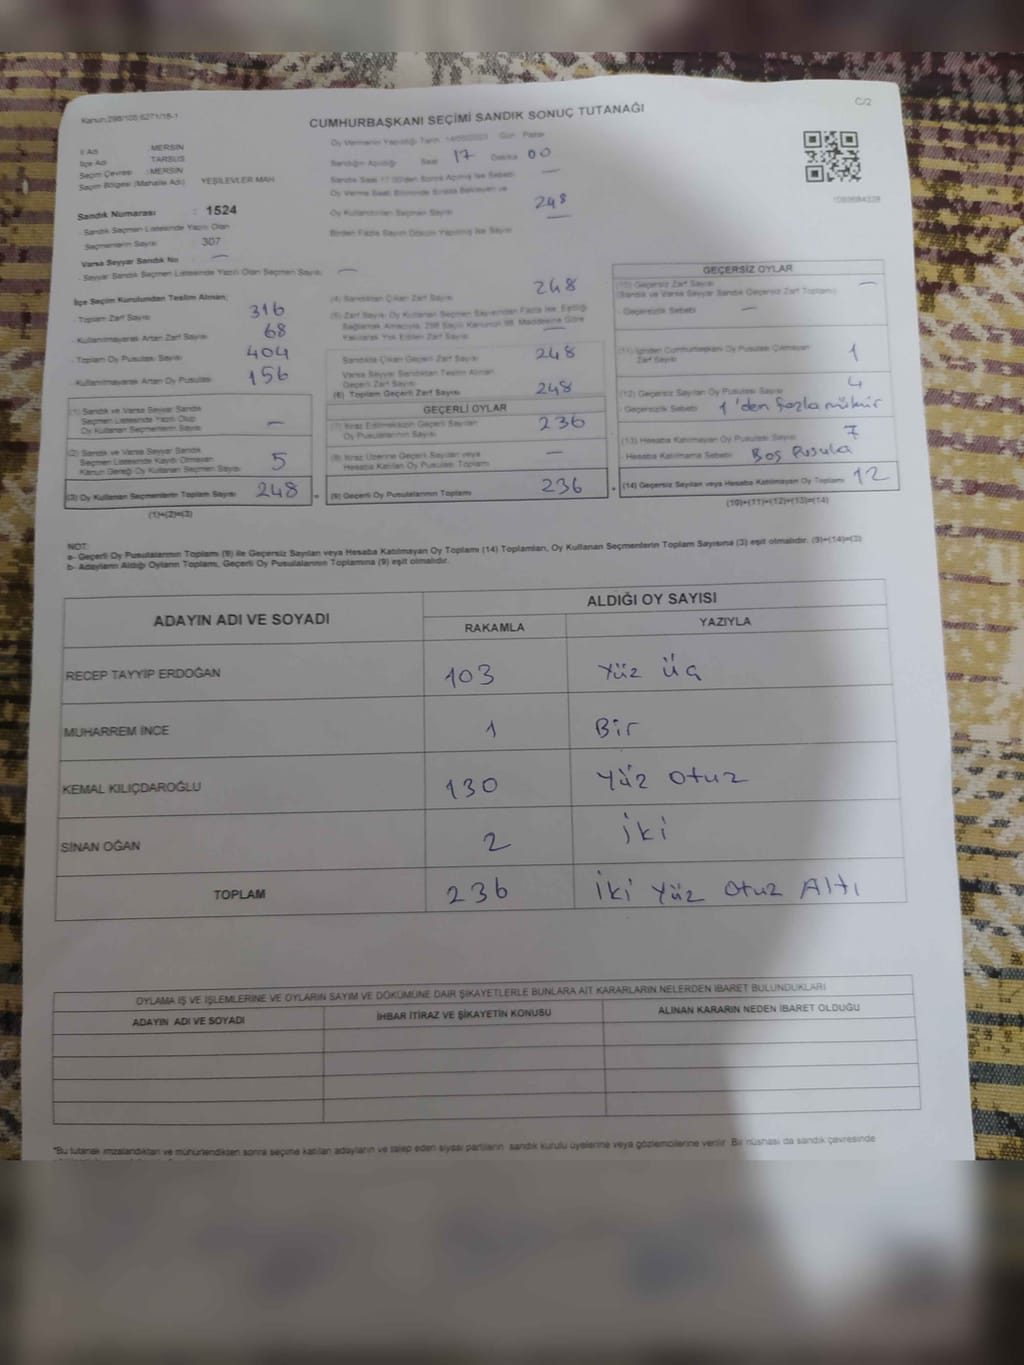 Kanun:298/105;6271/18-1
C/2
CUMHURBAŞKANI SEÇİMİ SANDIK SONUÇ TUTANAĞI
İl Adı MERSİN
İlçe Adı TARSUS
Seçim Çevresi :MERSİN
Seçim Bölgesi (Mahalle Adı) YEŞİLEVLER MAH
Sandık Numarası : 1524
- Sandık Seçmen Listesinde Yazılı Olan
Seçmenlerin Sayısı 307
Varsa Seyyar Sandık No : —
- Seyyar Sandık Seçmen Listesinde Yazılı Olan Seçmen Sayısı: —
Oy Vermenin Yapıldığı Tarih: 14/05/2023 Gün: Pazar
Sandığın Açıldığı Saat 17 Dakika 00
Sandık Saat 17:00'den Sonra Açılmış İse Sebebi —
Oy Verme Saati Bitiminde Sırada Bekleyen ve
Oy Kullandırılan Seçmen Sayısı 248
Birden Fazla Sayım Döküm Yapılmış İse Sayısı —
İlçe Seçim Kurulundan Teslim Alınan;
- Toplam Zarf Sayısı 316
- Kullanılmayarak Artan Zarf Sayısı 68
- Toplam Oy Pusulası Sayısı 404
- Kullanılmayarak Artan Oy Pusulası 156
(1) Sandık ve Varsa Seyyar Sandık
Seçmen Listesinde Yazılı Olup
Oy Kullanan Seçmenlerin Sayısı —
(2) Sandık ve Varsa Seyyar Sandık
Seçmen Listesinde Kayıtlı Olmayan
Kanun Gereği Oy Kullanan Seçmen Sayısı 5
(3) Oy Kullanan Seçmenlerin Toplam Sayısı 248
(1)+(2)=(3)
(4) Sandıktan Çıkan Zarf Sayısı 248
(5) Zarf Sayısı Oy Kullanan Seçmen Sayısından Fazla İse, Eşitliği
Sağlamak Amacıyla, 298 Sayılı Kanunun 98. Maddesine Göre
Yakılarak Yok Edilen Zarf Sayısı —
Sandıkta Çıkan Geçerli Zarf Sayısı 248
Varsa Seyyar Sandıktan Teslim Alınan
Geçerli Zarf Sayısı
(6) Toplam Geçerli Zarf Sayısı 248
GEÇERLİ OYLAR
(7) İtiraz Edilmeksizin Geçerli Sayılan
Oy Pusulalarının Sayısı 236
(8) İtiraz Üzerine Geçerli Sayılan veya
Hesaba Katılan Oy Pusulası Toplamı —
(9) Geçerli Oy Pusulalarının Toplamı 236
GEÇERSİZ OYLAR
(10) Geçersiz Zarf Sayısı —
(Sandık ve Varsa Seyyar Sandık Geçersiz Zarf Toplamı)
- Geçersizlik Sebebi —
(11) İçinden Cumhurbaşkanı Oy Pusulası Çıkmayan
Zarf Sayısı 1
(12) Geçersiz Sayılan Oy Pusulası Sayısı 4
- Geçersizlik Sebebi 1'den fazla mühür
(13) Hesaba Katılmayan Oy Pusulası Sayısı 7
- Hesaba Katılmama Sebebi Boş Pusula
(14) Geçersiz Sayılan veya Hesaba Katılmayan Oy Toplamı 12
(10)+(11)+(12)+(13)=(14)
NOT:
a- Geçerli Oy Pusulalarının Toplamı (9) ile Geçersiz Sayılan veya Hesaba Katılmayan Oy Toplamı (14) Toplamları, Oy Kullanan Seçmenlerin Toplam Sayısına (3) eşit olmalıdır. (9)+(14)=(3)
b- Adayların Aldığı Oyların Toplamı, Geçerli Oy Pusulalarının Toplamına (9) eşit olmalıdır.
ADAYIN ADI VE SOYADI ALDIĞI OY SAYISI
RAKAMLA YAZIYLA
RECEP TAYYİP ERDOĞAN 103 Yüz üç
MUHARREM İNCE 1 Bir
KEMAL KILIÇDAROĞLU 130 Yüz Otuz
SİNAN OĞAN 2 İki
TOPLAM 236 İki Yüz Otuz Altı
OYLAMA İŞ VE İŞLEMLERİNE VE OYLARIN SAYIM VE DÖKÜMÜNE DAİR ŞİKAYETLERLE BUNLARA AİT KARARLARIN NELERDEN İBARET BULUNDUKLARI
ADAYIN ADI VE SOYADI İHBAR İTİRAZ VE ŞİKAYETİN KONUSU ALINAN KARARIN NEDEN İBARET OLDUĞU
*Bu tutanak imzalandıktan ve mühürlendikten sonra seçime katılan adayların ve talep eden siyasi partilerin sandık kurulu üyelerine veya gözlemcilerine verilir. Bir nüshası da sandık çevresinde